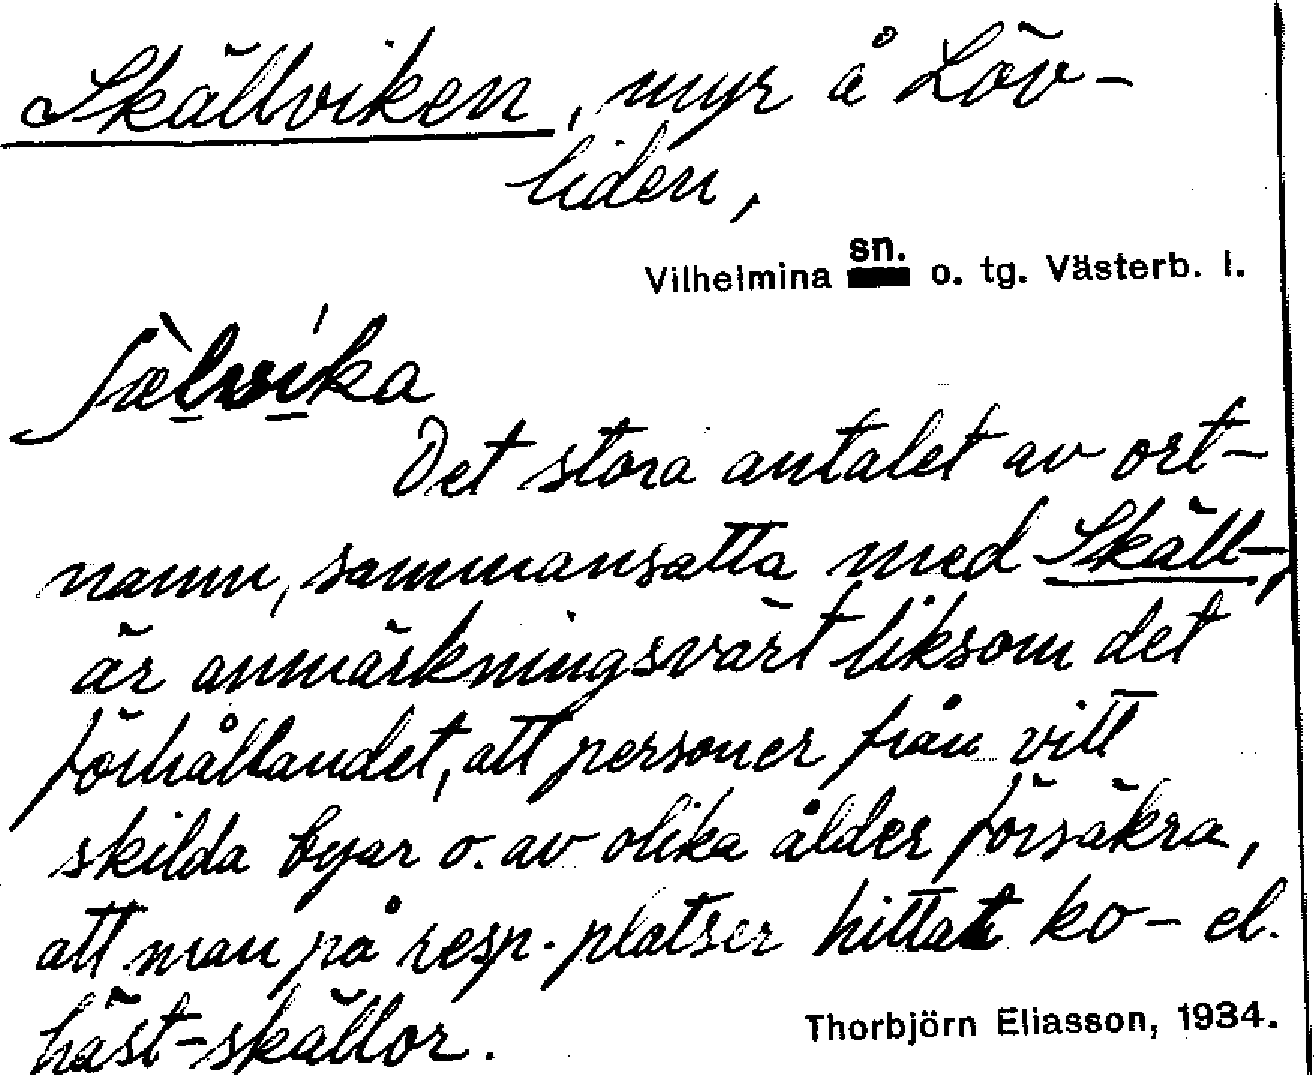 Skällviken, myr å Löv-
liden,
Vilhelmina sn. o. tg. Västerb. l.
ʃæ̀lvíka
Det stora antalet av ort-
namn, sammansatta med Skäll-,
är anmärkningsvärt liksom det
förhållandet, att personer från vitt
skilda byar o. av olika ålder försäkra,
att man på resp. platser hittat ko- el.
häst-skällor.
Thorbjörn Eliasson, 1934.